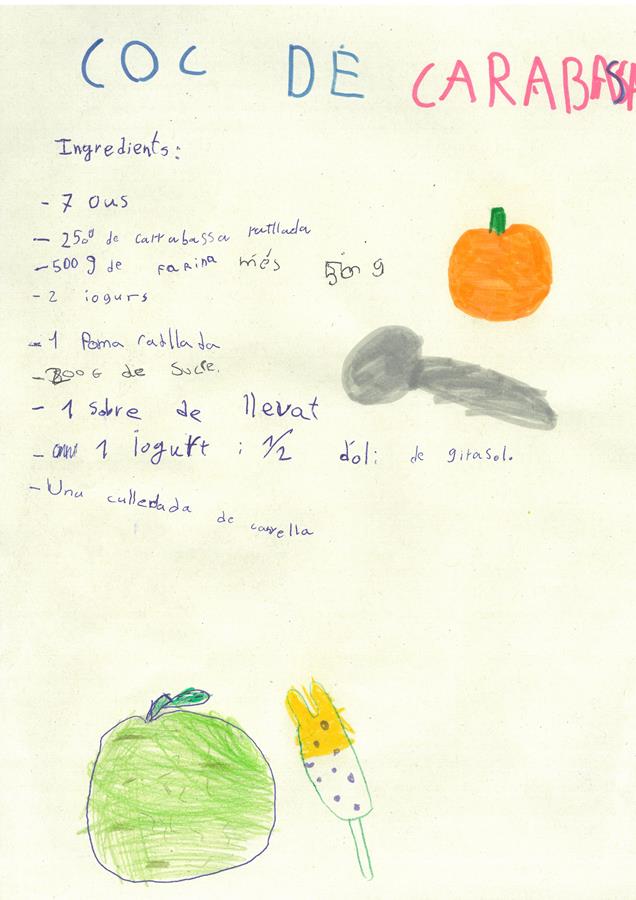 COC DE CARABASSA
Ingredients:
- 7 ous
- 250g de carrabassa ratllada
- 500 g de farina més 50 g
- 2 iogurs
- 1 Poma ratllada
- 300 G de sucre.
- 1 sobre de llevat
- 1 iogurt i 1/2 d'oli de girasol.
- Una cullerada de canyella